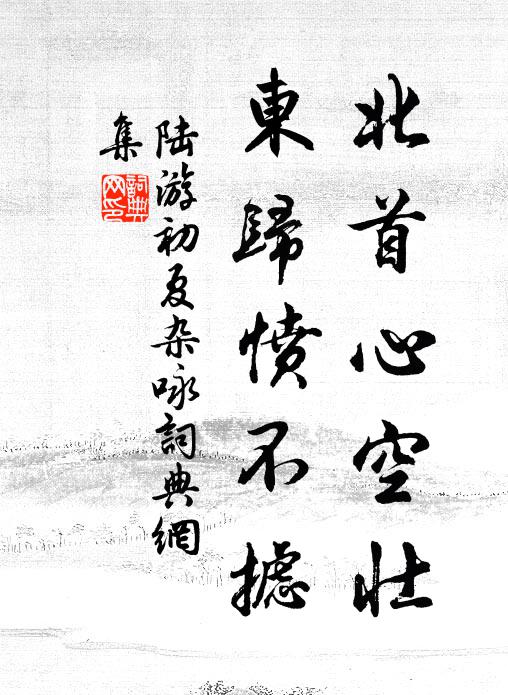 北首心空壯
東歸憤不攄
陸游初夏杂咏詞典網
集
詞典網印